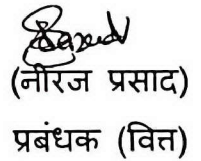 (नीरज प्रसाद)
प्रबंधक (वित्त)